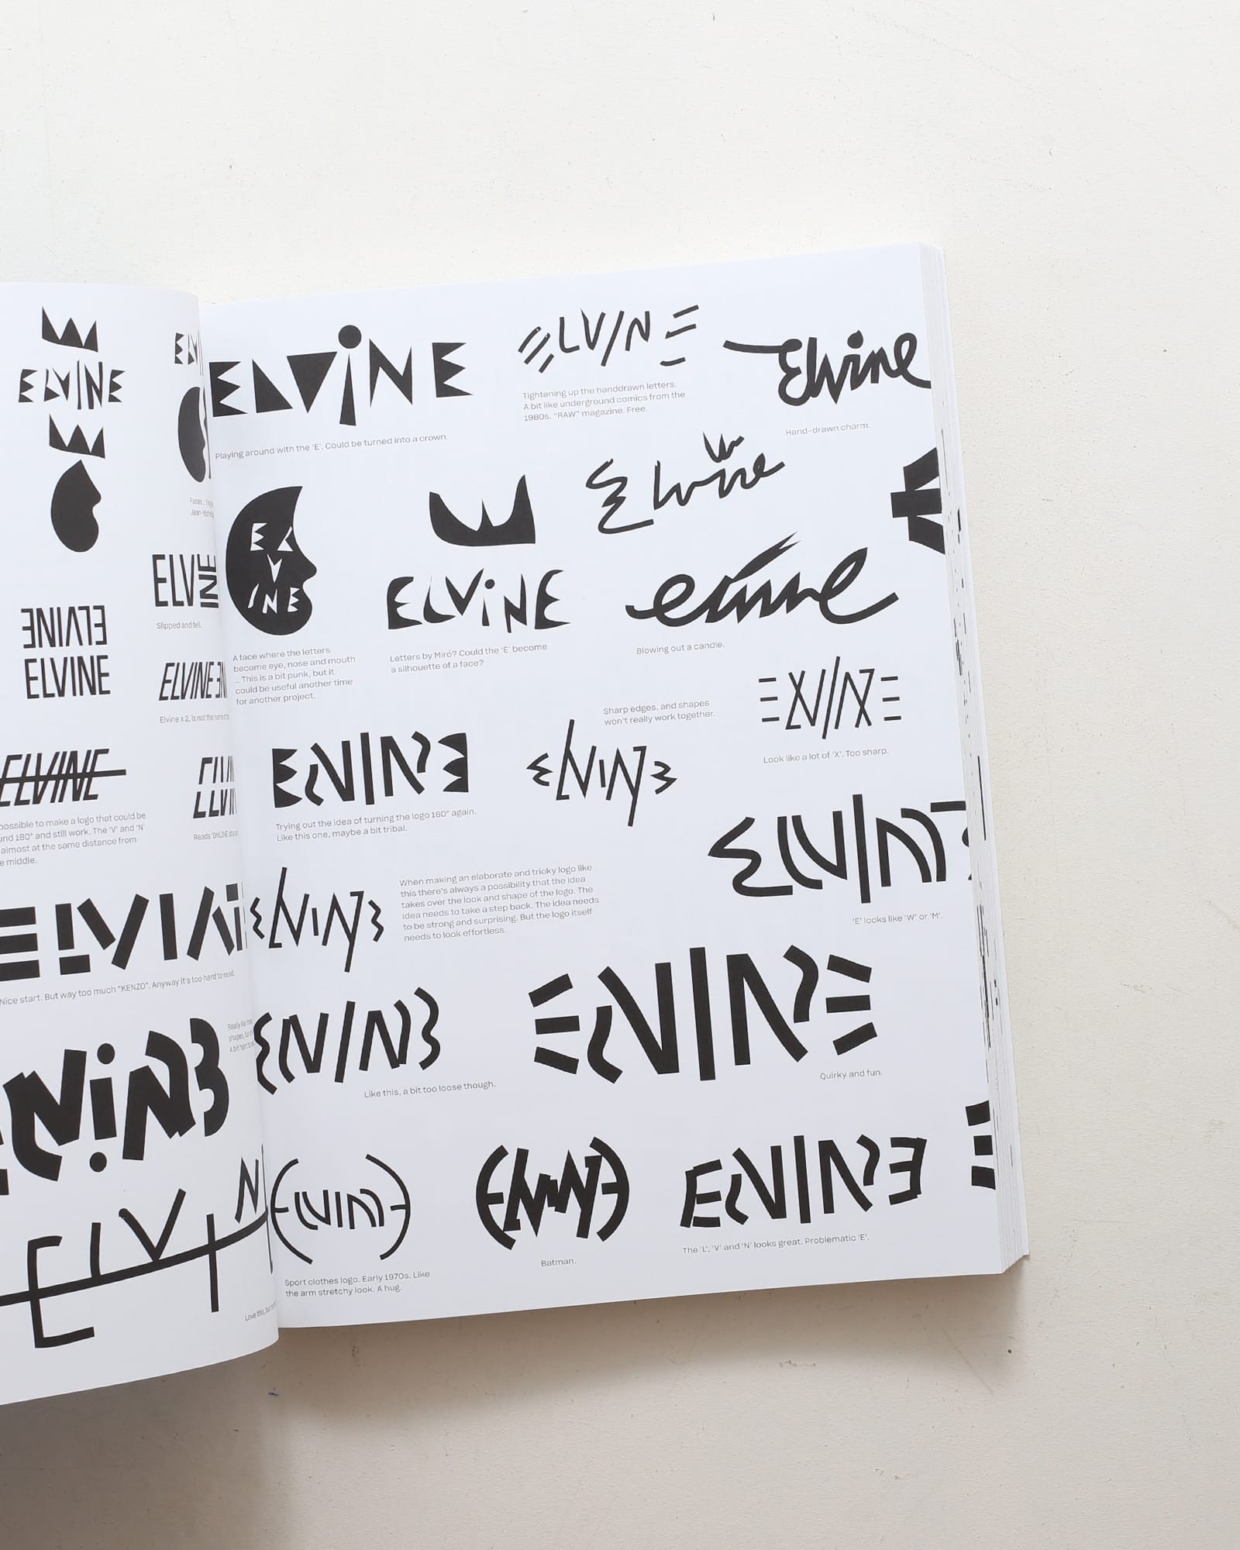 ELVINE
ELVINE
ELVINE
Slipped and fell.
ELVINE
Elvine x 2, is not the
ELVINE
possible to make a logo that could be
und 180° and still work. The 'V' and 'N'
almost at the same distance from
e middle.
Nice start. But way too much "KENZO". Anyway it's too hard to read.
ELVINE
Playing around with the 'E'. Could be turned into a crown.
ELVINE
Tightening up the handdrawn letters.
A bit like underground comics from the
1980s. "RAW" magazine. Free.
Elvine
Hand-drawn charm.
ELVINE
A face where the letters
become eye, nose and mouth
... This is a bit punk, but it
could be useful another time
for another project.
ELVINE
Letters by Miró? Could the 'E' become
a silhouette of a face?
Elvine
elvine
Blowing out a candle.
ELVINE
Trying out the idea of turning the logo 180° again.
Like this one, maybe a bit tribal.
Sharp edges, and shapes
won't really work together.
ELVINE
ELVINE
Look like a lot of 'X'. Too sharp.
ELVINE
When making an elaborate and tricky logo like
this there's always a possibility that the idea
takes over the look and shape of the logo. The
idea needs to take a step back. The idea needs
to be strong and surprising. But the logo itself
needs to look effortless.
'E' looks like 'W' or 'M'.
ELVINE
Like this, a bit too loose though.
ELVINE
Quirky and fun.
ELVINE
Sport clothes logo. Early 1970s. Like
the arm stretchy look. A hug.
ELVINE
Batman.
ELVINE
The 'L', 'V' and 'N' looks great. Problematic 'E'.